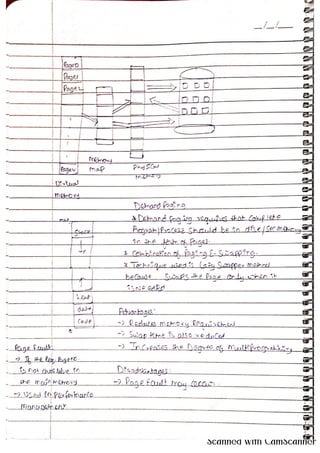 Page 0
Page 1
Page 2
Page n
Virtual
memory
memory
map
Physical
memory
Demand Paging
* Demand Paging requires that complete
Program/Process should be in
in the form of Pages
* Combination of Paging & Swapping.
* Technique used is Lazy Swapper method
because Swaps the Page only when it
is needed
max
Stack
heap
data
Code
0
Advantages:
-> Reduces memory Requirement
-> Swap time is also reduced
-> Increases the Degree of MultiProgramming
Disadvantages:
-> Page fault may occur.
Page fault:
-> If the
is not available in
the main memory
-> Used in Performance
Management
Scanned with CamScanner